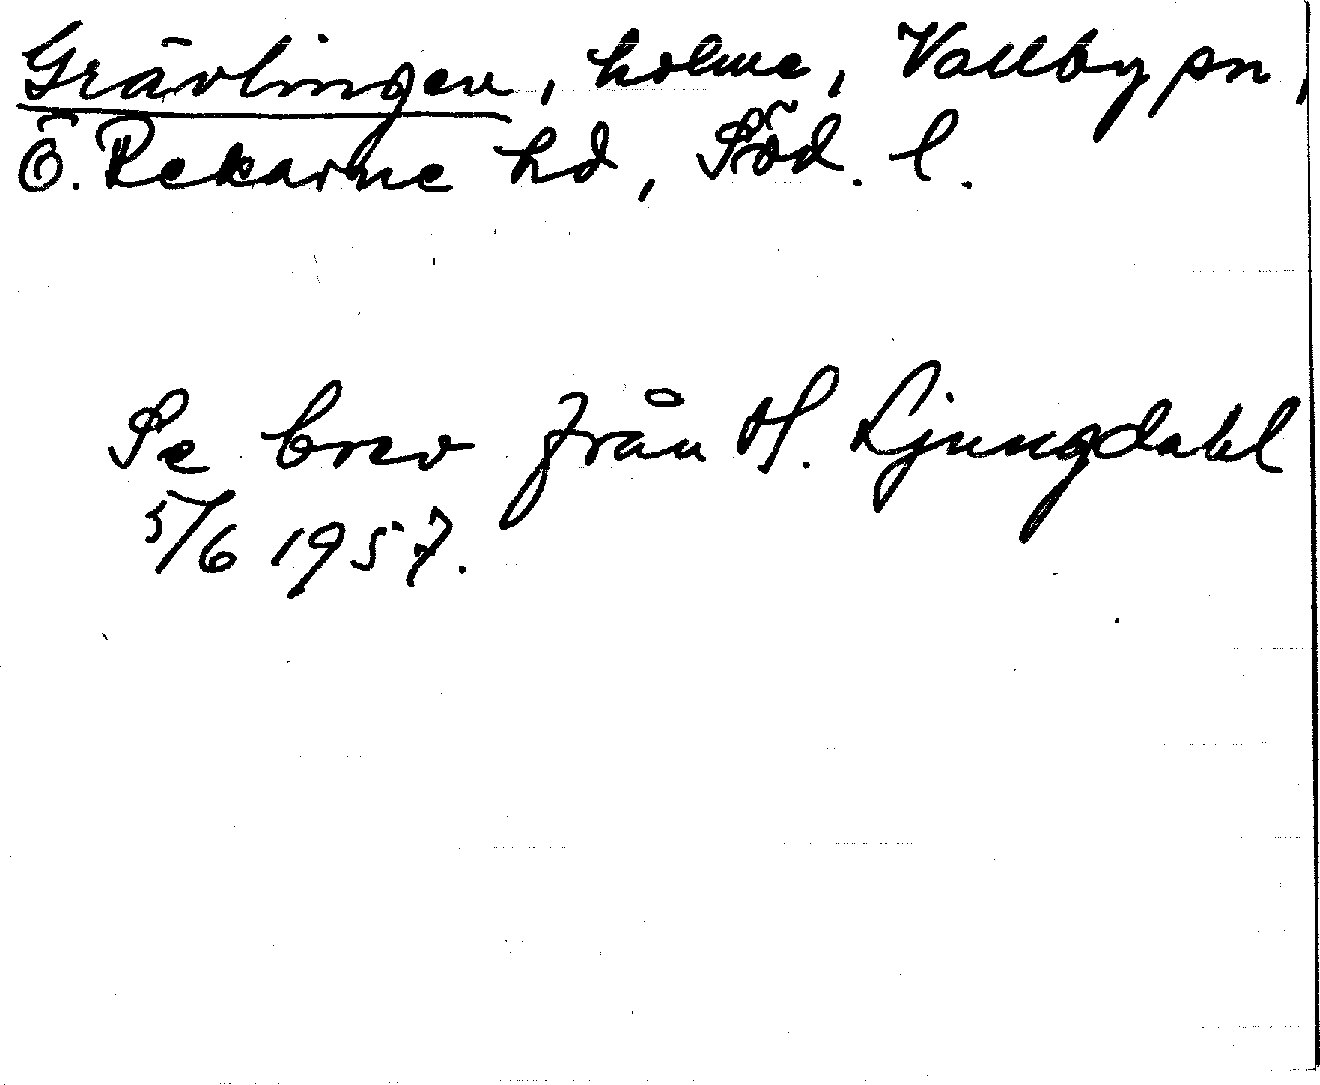 Grävlingen, holme, Vallby sn,
Ö. Rekarne hd, Söd. l.
Se brev från H. Ljungdahl
5/6 1957.